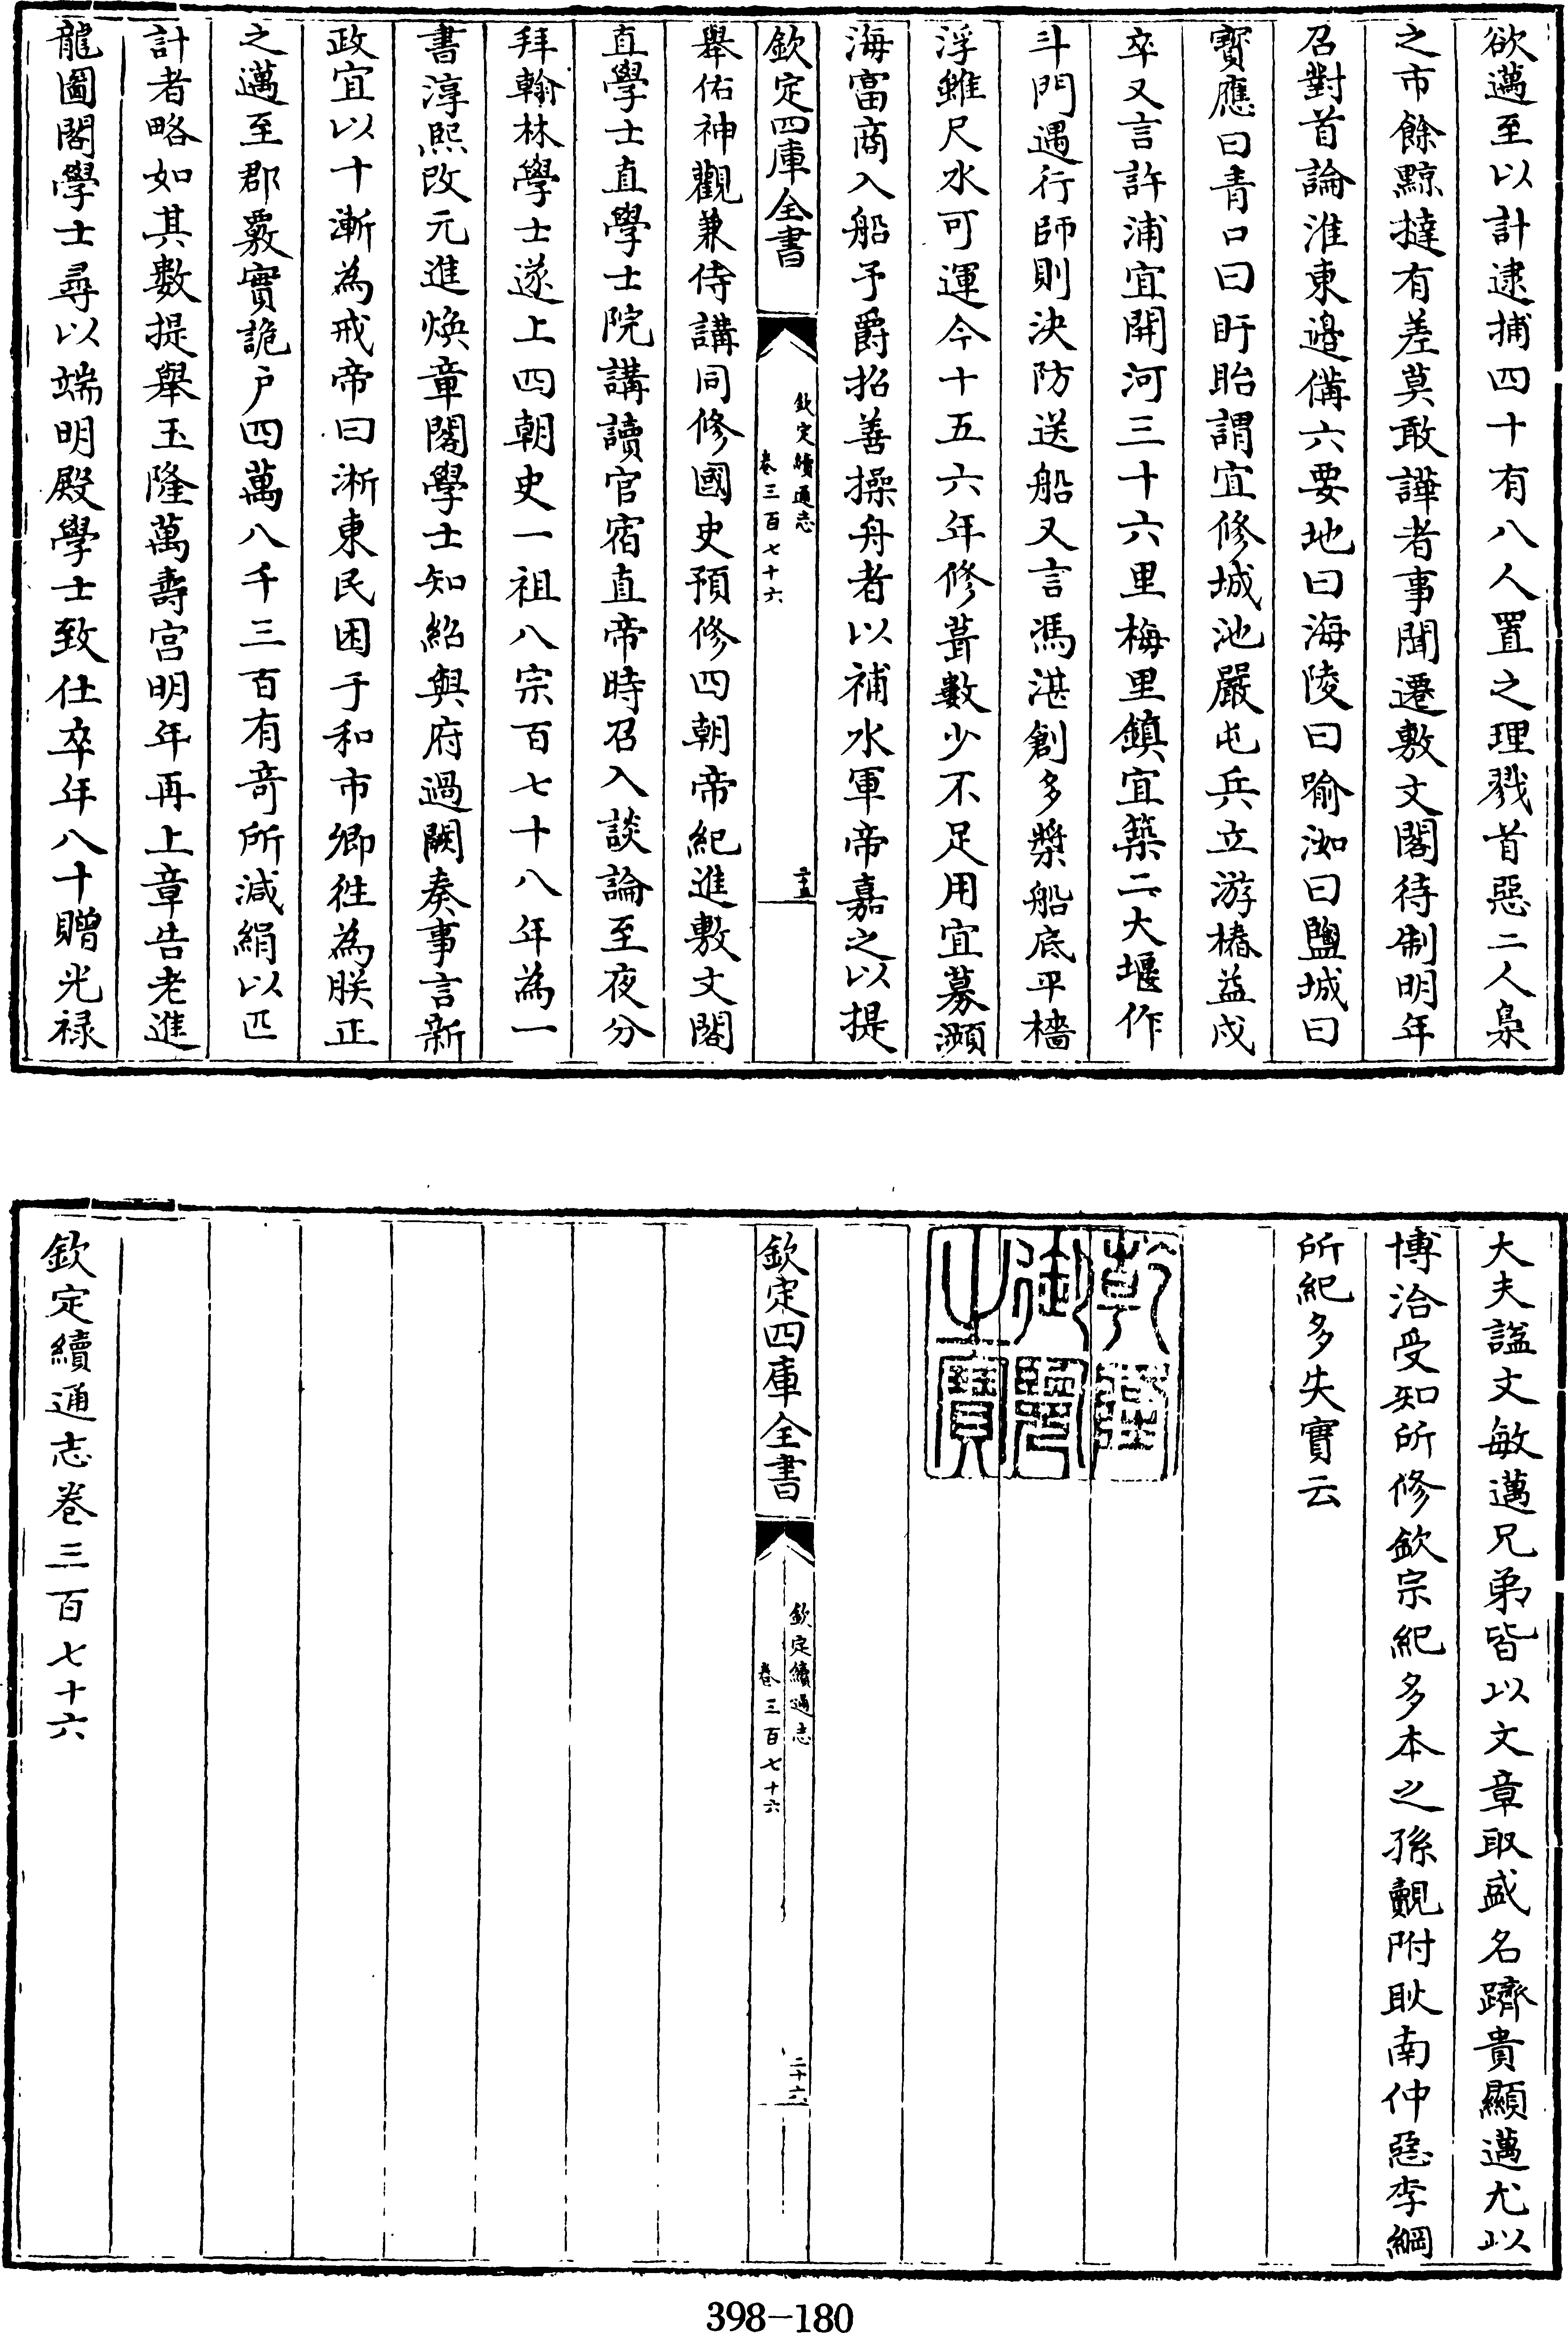 欲邁至以計逮捕四十有八人置之理戮首惡二人梟
之市餘黥撻有差莫敢譁者事聞遷敷文閣待制明年
召對首論淮東邉備六要地曰海陵曰喻洳曰鹽城曰
寳應曰青口曰盱眙謂宜修城池嚴屯兵立游樁益戍
卒又言許浦宜開河三十六里梅里鎮宜築二大堰作
斗門遇行師則決防送船又言馮湛創多槳船底平檣
浮雖尺水可運今十五六年修葺數少不足用宜募瀕
海富商入船予爵招善操舟者以補水軍帝嘉之以提
欽定四庫全書
欽定續通志
卷三百七十六
二十五
舉佑神觀兼侍講同修國史預修四朝帝紀進敷文閣
直學士直學士院講讀官宿直帝時召入談論至夜分
拜翰林學士遂上四朝史一祖八宗百七十八年為一
書淳熙改元進煥章閣學士知紹興府過闕奏事言新
政宜以十漸為戒帝曰淅東民困于和市卿徃為朕正
之邁至郡覈實詭户四萬八千三百有奇所減絹以匹
計者略如其數提舉玉隆萬壽宫明年再上章告老進
龍圖閣學士尋以端明殿學士致仕卒年八十贈光禄
大夫諡文敏邁兄弟皆以文章取盛名躋貴顯邁尤以
博洽受知所修欽宗紀多本之孫覿附耿南仲惡李綱
所紀多失實云
乾隆
御覽
之寶
欽定四庫全書
欽定續通志
卷三百七十六
二十六
欽定續通志卷三百七十六
398-180